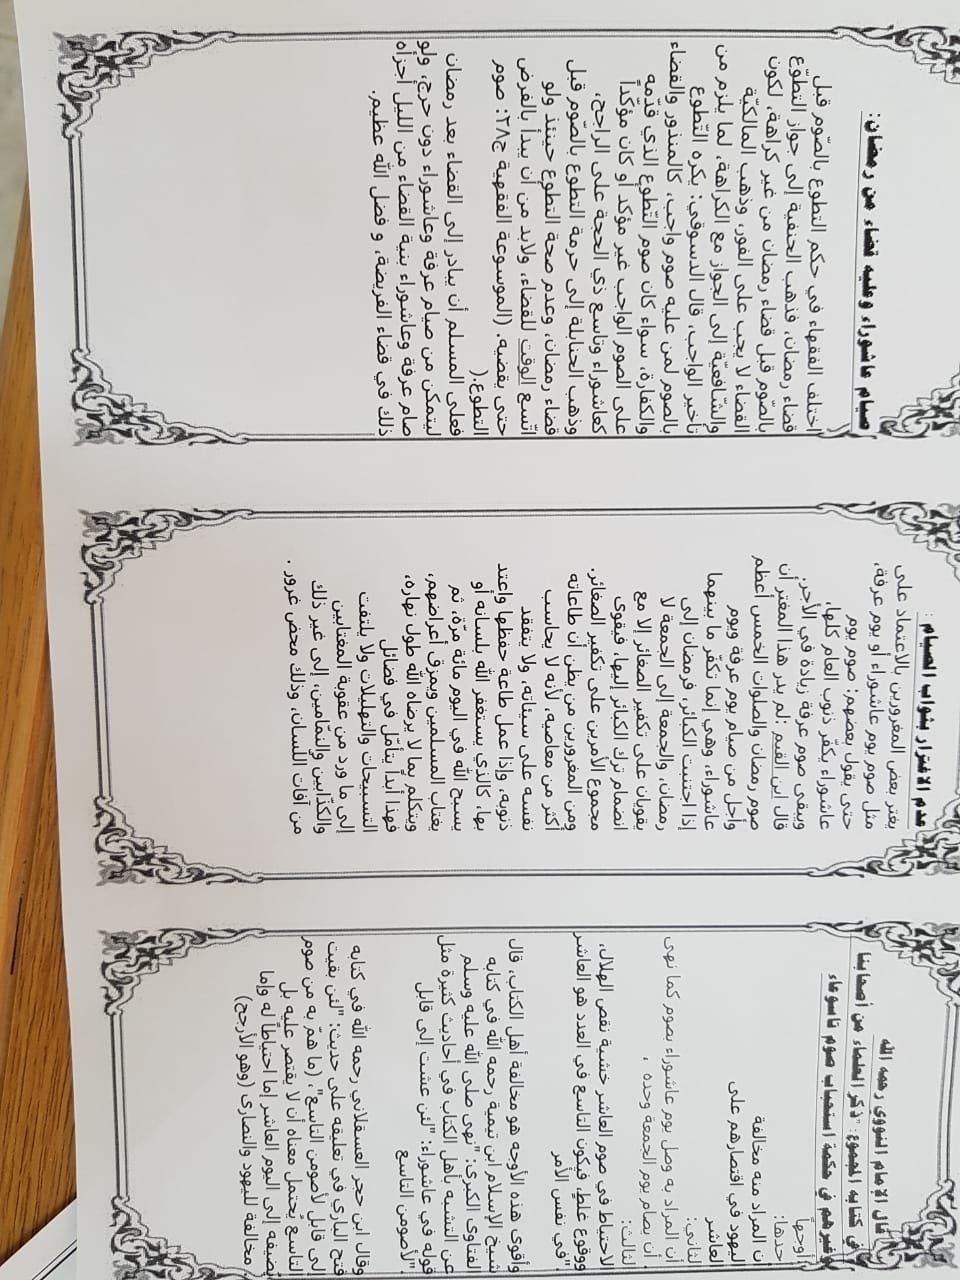 صيام عاشوراء وعليه قضاء من رمضان:
اختلف الفقهاء في حكم التطوع بالصّوم قبل
قضاء رمضان، فذهب الحنفية إلى جواز التطوّع
بالصّوم قبل قضاء رمضان من غير كراهة، لكون
القضاء لا يجب على الفور، وذهب المالكيّة
والشّافعيّة إلى الجواز مع الكراهة، لما يلزم من
تأخير الواجب، قال الدسوقي: يكره التّطوع
بالصوم لمن عليه صوم واجب، كالمنذور والقضاء
والكفارة، سواء كان صوم التّطوع الذي قدّمه
على الصوم الواجب غير مؤكد أو كان مؤكداً
كعاشوراء وتاسع ذي الحجة على الراجح،
وذهب الحنابلة إلى حرمة التطوع بالصّوم قبل
قضاء رمضان، وعدم صحة التطوع حينئذ ولو
اتّسع الوقت للقضاء، ولابد من أن يبدأ بالفرض
حتى يقضيه. (الموسوعة الفقهية ج٢٨: صوم
التطوع.(
فعلى المسلم أن يبادر إلى القضاء بعد رمضان
ليتمكن من صيام عرفة وعاشوراء دون حرج، ولو
صام عرفة وعاشوراء بنية القضاء من الليل أجزأه
ذلك في قضاء الفريضة، و فضل الله عظيم.
عدم الاغترار بثواب الصيام :
يغتر بعض المغرورين بالاعتماد على
مثل صوم يوم عاشوراء أو يوم عرفة،
حتى يقول بعضهم: صوم يوم
عاشوراء يكفّر ذنوب العام كلها،
ويبقى صوم عرفة زيادة في الأجر.
قال ابن القيم :لم يدر هذا المغتر أن
صوم رمضان والصلوات الخمس أعظم
وأجل من صيام يوم عرفة ويوم
عاشوراء، وهي إنما تكفّر ما بينهما
إذا اجتنبت الكبائر، فرمضان إلى
رمضان، والجمعة إلى الجمعة لا
يقويان على تكفير الصغائر إلا مع
انضمام ترك الكبائر إليها، فيقوى
مجموع الأمرين على تكفير الصغائر.
ومن المغرورين من يظن أن طاعاته
أكثر من معاصيه، لأنه لا يحاسب
نفسه على سيئاته، ولا يتفقد
ذنوبه، وإذا عمل طاعة حفظها واعتد
بها، كالذي يستغفر الله بلسانه أو
يسبح الله في اليوم مائة مرّة، ثم
يغتاب المسلمين ويمزق أعراضهم،
ويتكلم بما لا يرضاه الله طول نهاره،
فهذا أبداً يتأمّل في فضائل
التسبيحات والتهليلات ولا يلتفت
إلى ما ورد من عقوبة المغتابين
والكذّابين والنمّامين، إلى غير ذلك
من آفات اللسان، وذلك محض غرور .
قال الإمام النووي رحمه الله
في كتابه المجموع: "ذكر العلماء من أصحابنا
وغيرهم في حكمة استحباب صوم تاسوعاء
أوجها
أحدها:
أن المراد منه مخالفة
اليهود في اقتصارهم على
العاشر
الثاني:
أن المراد به وصل يوم عاشوراء بصوم كما نهى
أن يصام يوم الجمعة وحده .
الثالث:
الاحتياط في صوم العاشر خشية نقص الهلال،
ووقوع غلطٍ، فيكون التاسع في العدد هو العاشر
في نفس الأمر."
وأقوى هذه الأوجه هو مخالفة أهل الكتاب، قال
شيخ الإسلام ابن تيمية رحمه الله في كتابه
الفتاوى الكبرى: "نهى صلى الله عليه وسلم
عن التشبه بأهل الكتاب في أحاديث كثيرة مثل
قوله في عاشوراء: "لئن عشت إلى قابل
لأصومن التاسع"
وقال ابن حجر العسقلاني رحمه الله في كتابه
فتح الباري في تعليقه على حديث: "لئن بقيت
إلى قابل لأصومن التاسع"، (ما همّ به من صوم
التاسع يُحتمل معناه أن لا يقتصر عليه بل
يضيفه إلى اليوم العاشر إما احتياطاً له وإما
مخالفة لليهود والنصارى (وهو الأرجح)